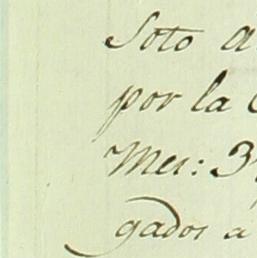 Soto a
por la
Mes: 3
gados a